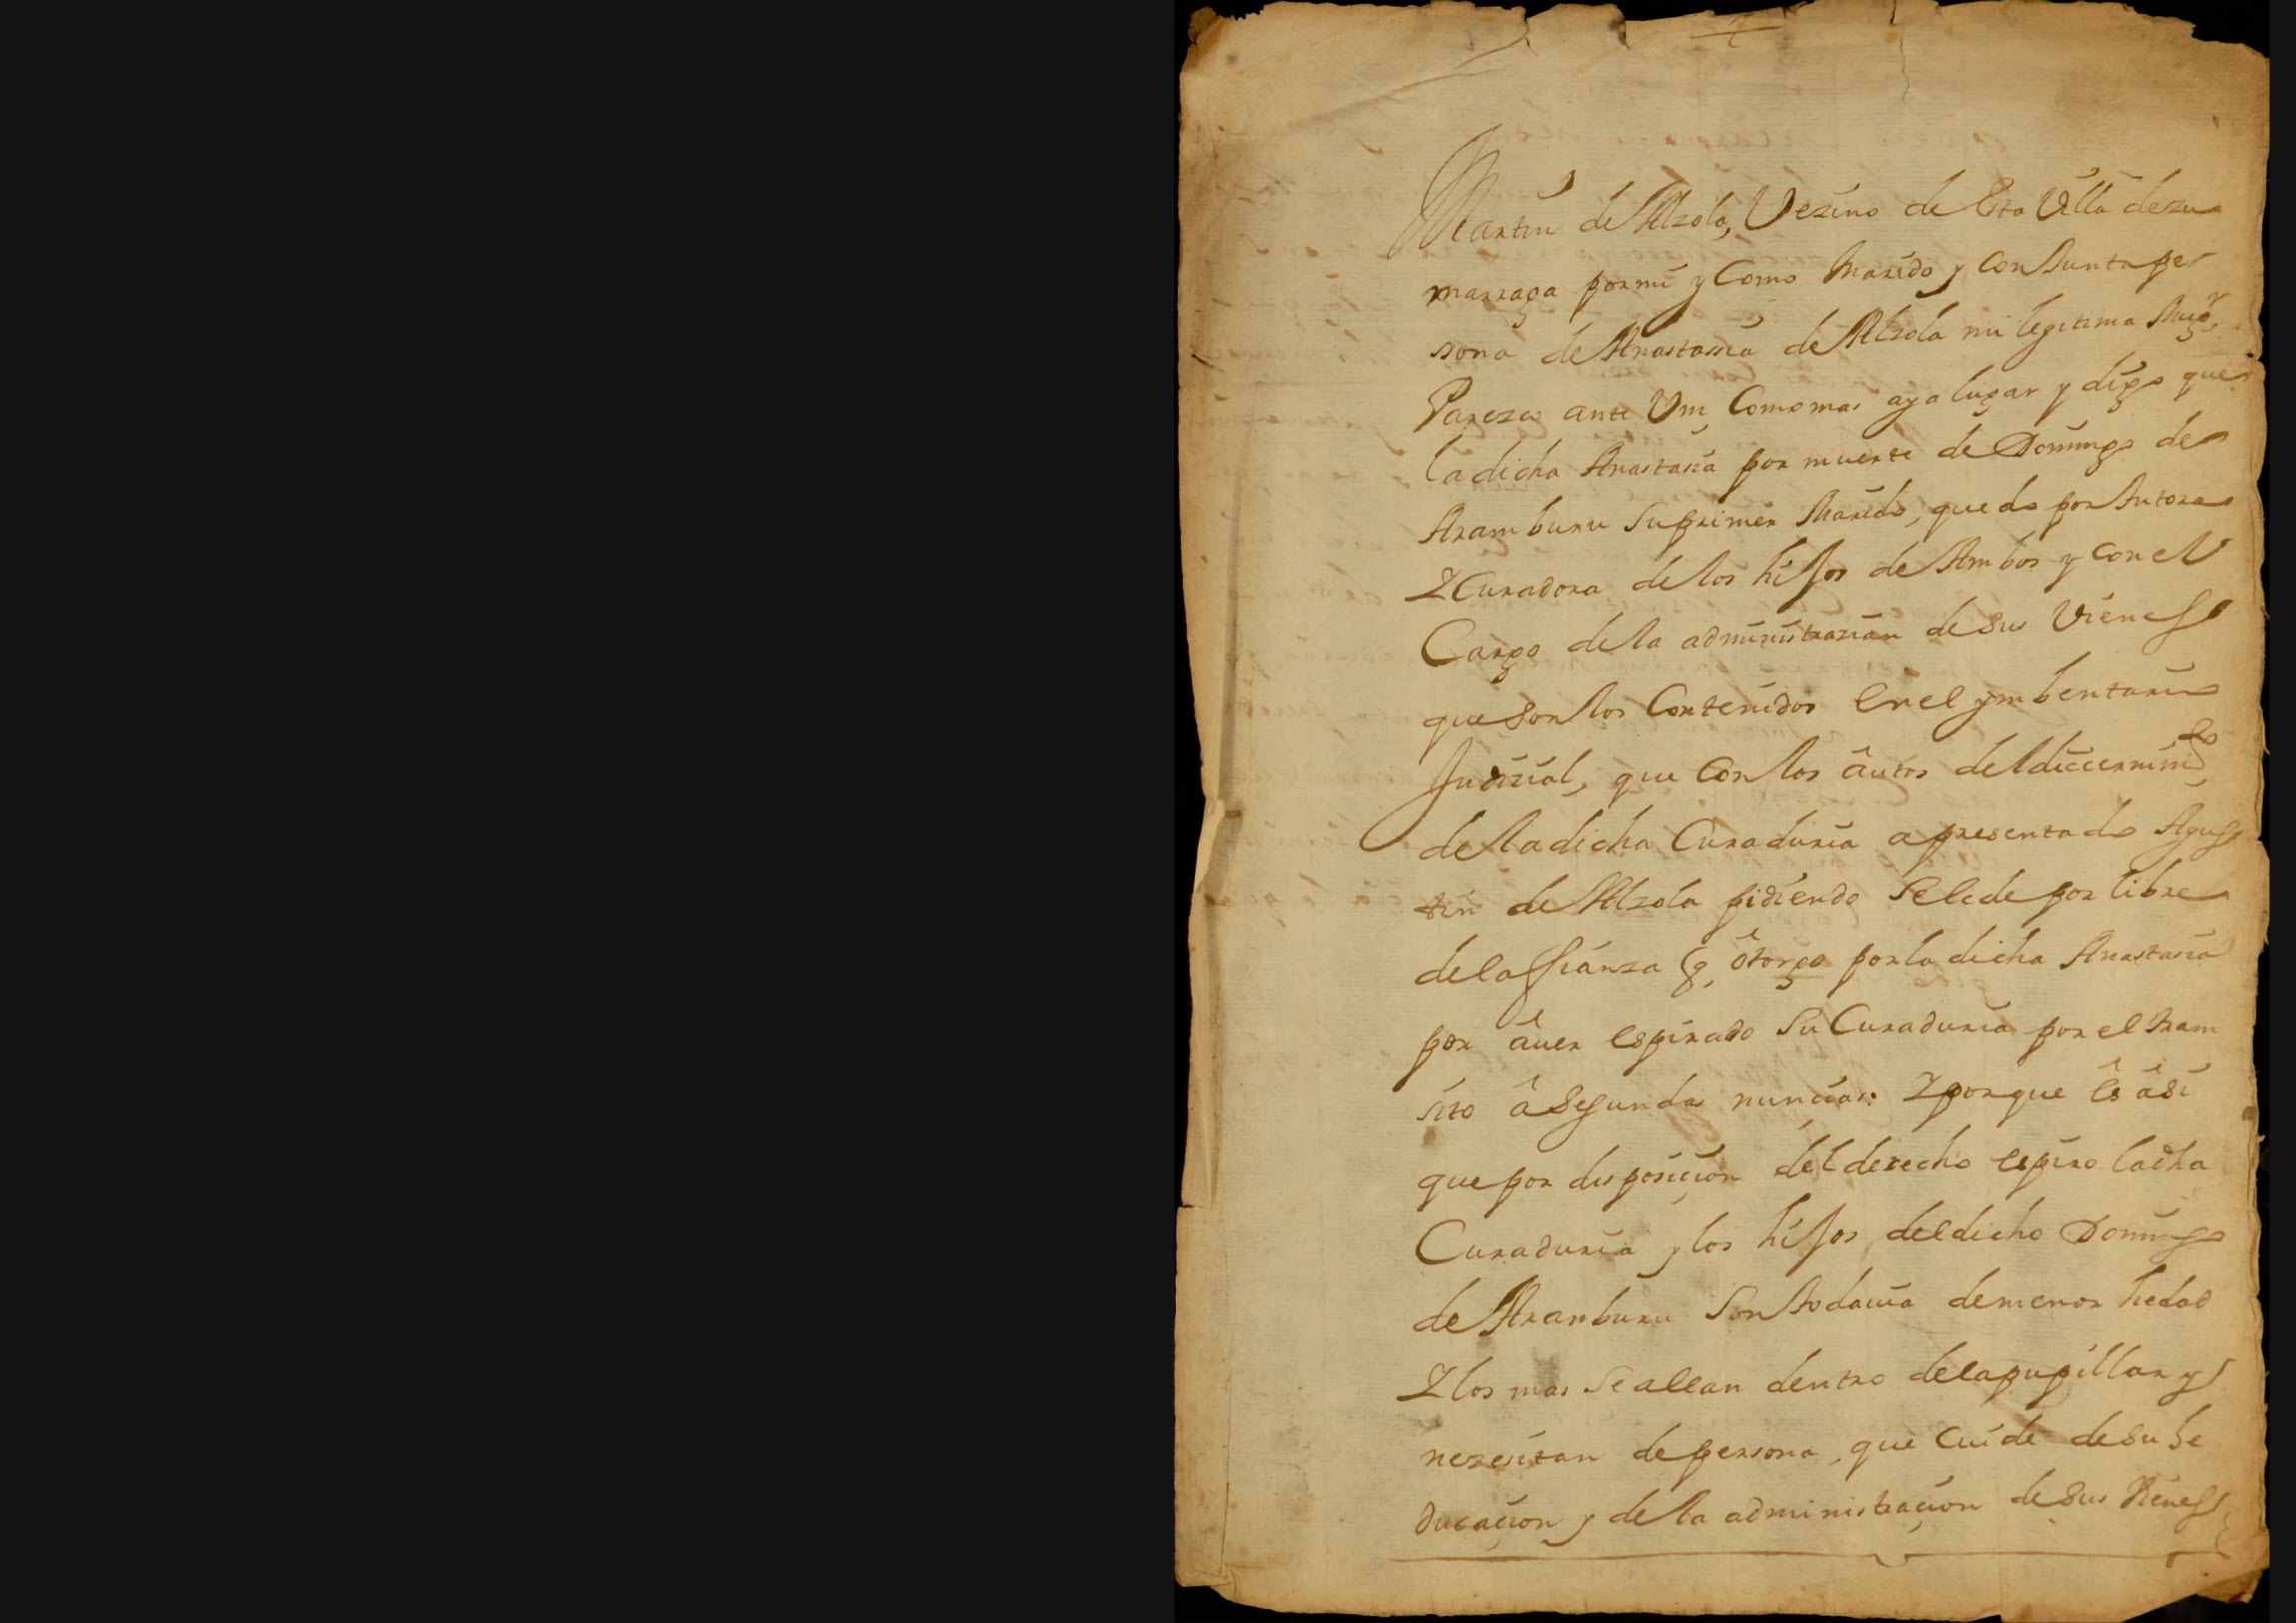 Martin de Alzola, Vezino de esta Villa de zu
marraga por mi y Como Marido y Conjunta per
sona de Anastassia de Alzola mi legitima Mugr
Parezco ante Vm, Como mas aya lugar y digo que
la dicha Anastasia por muerte de Domingo de
Aramburu su primer Marido, quedo por tutora
Y Curadora de los hijos de Ambos y con el
Cargo de la administrazion de sus Vienes
que son los Contenidos en el ymbentario
Judizial, que con los âutos del diccernimto
de la dicha Curaduria a presentado Agus
tin de Alzola pidiendo se le de por libre
de la fianza q̃ ôtorgo por la dicha Anastasia
por âuer espirado su Curaduria por el tram
sito â segundas nuncias: Y porque ês âsi
que por disposiçion del derecho espiro la dha
Curaduria y los hijos del dicho Domingo
de Aranburu son todauia de menor hedad
Y los mas se allan dentro de la pupillar y
nezesitan de persona, que cuide de su he
ducaçion y de la administraçion de sus Vienes